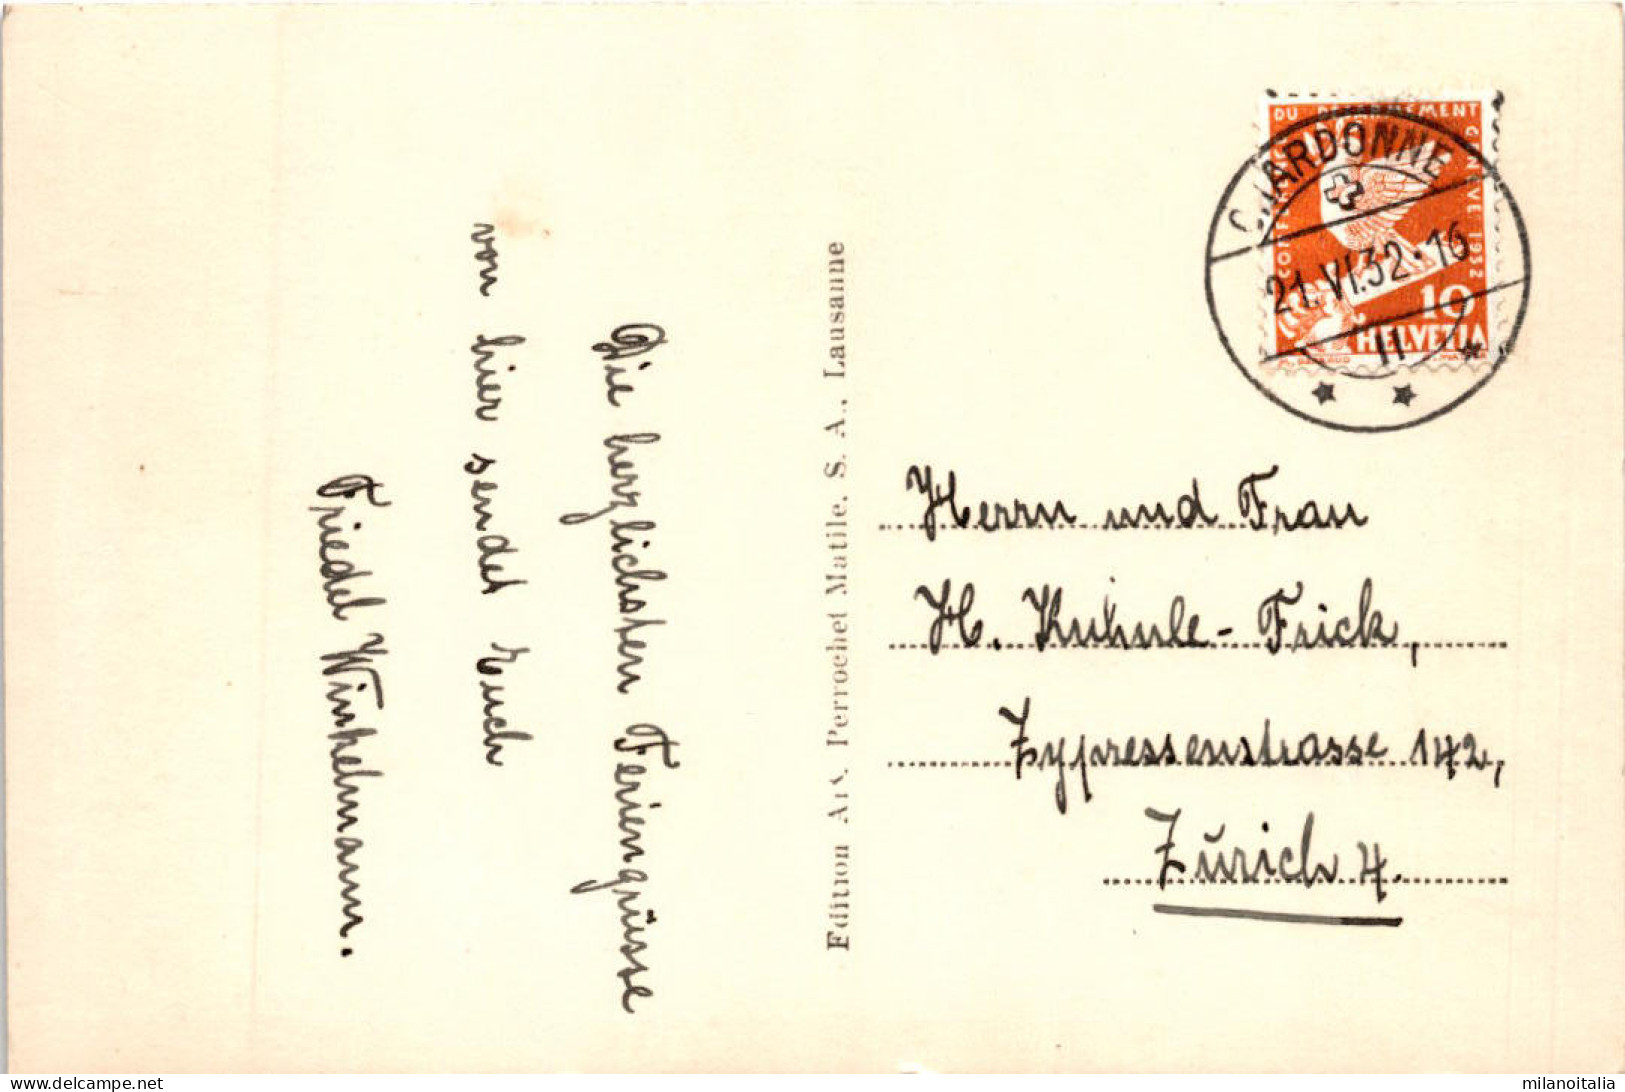 Die herzlichsten Feriengrüsse
von hier sendet Euch
Friedel Winkelmann.
Edition Art. Perrochet Matile, S. A., Lausanne
CHARDONNE
21.VI.32·16
DU DÉSARMEMENT
GENÈVE 1932
10
HELVETIA
Herrn und Frau
H. Kuhnle-Frick,
Zypressenstrasse 142,
Zürich 4.
milanoitalia
Delcampe.net